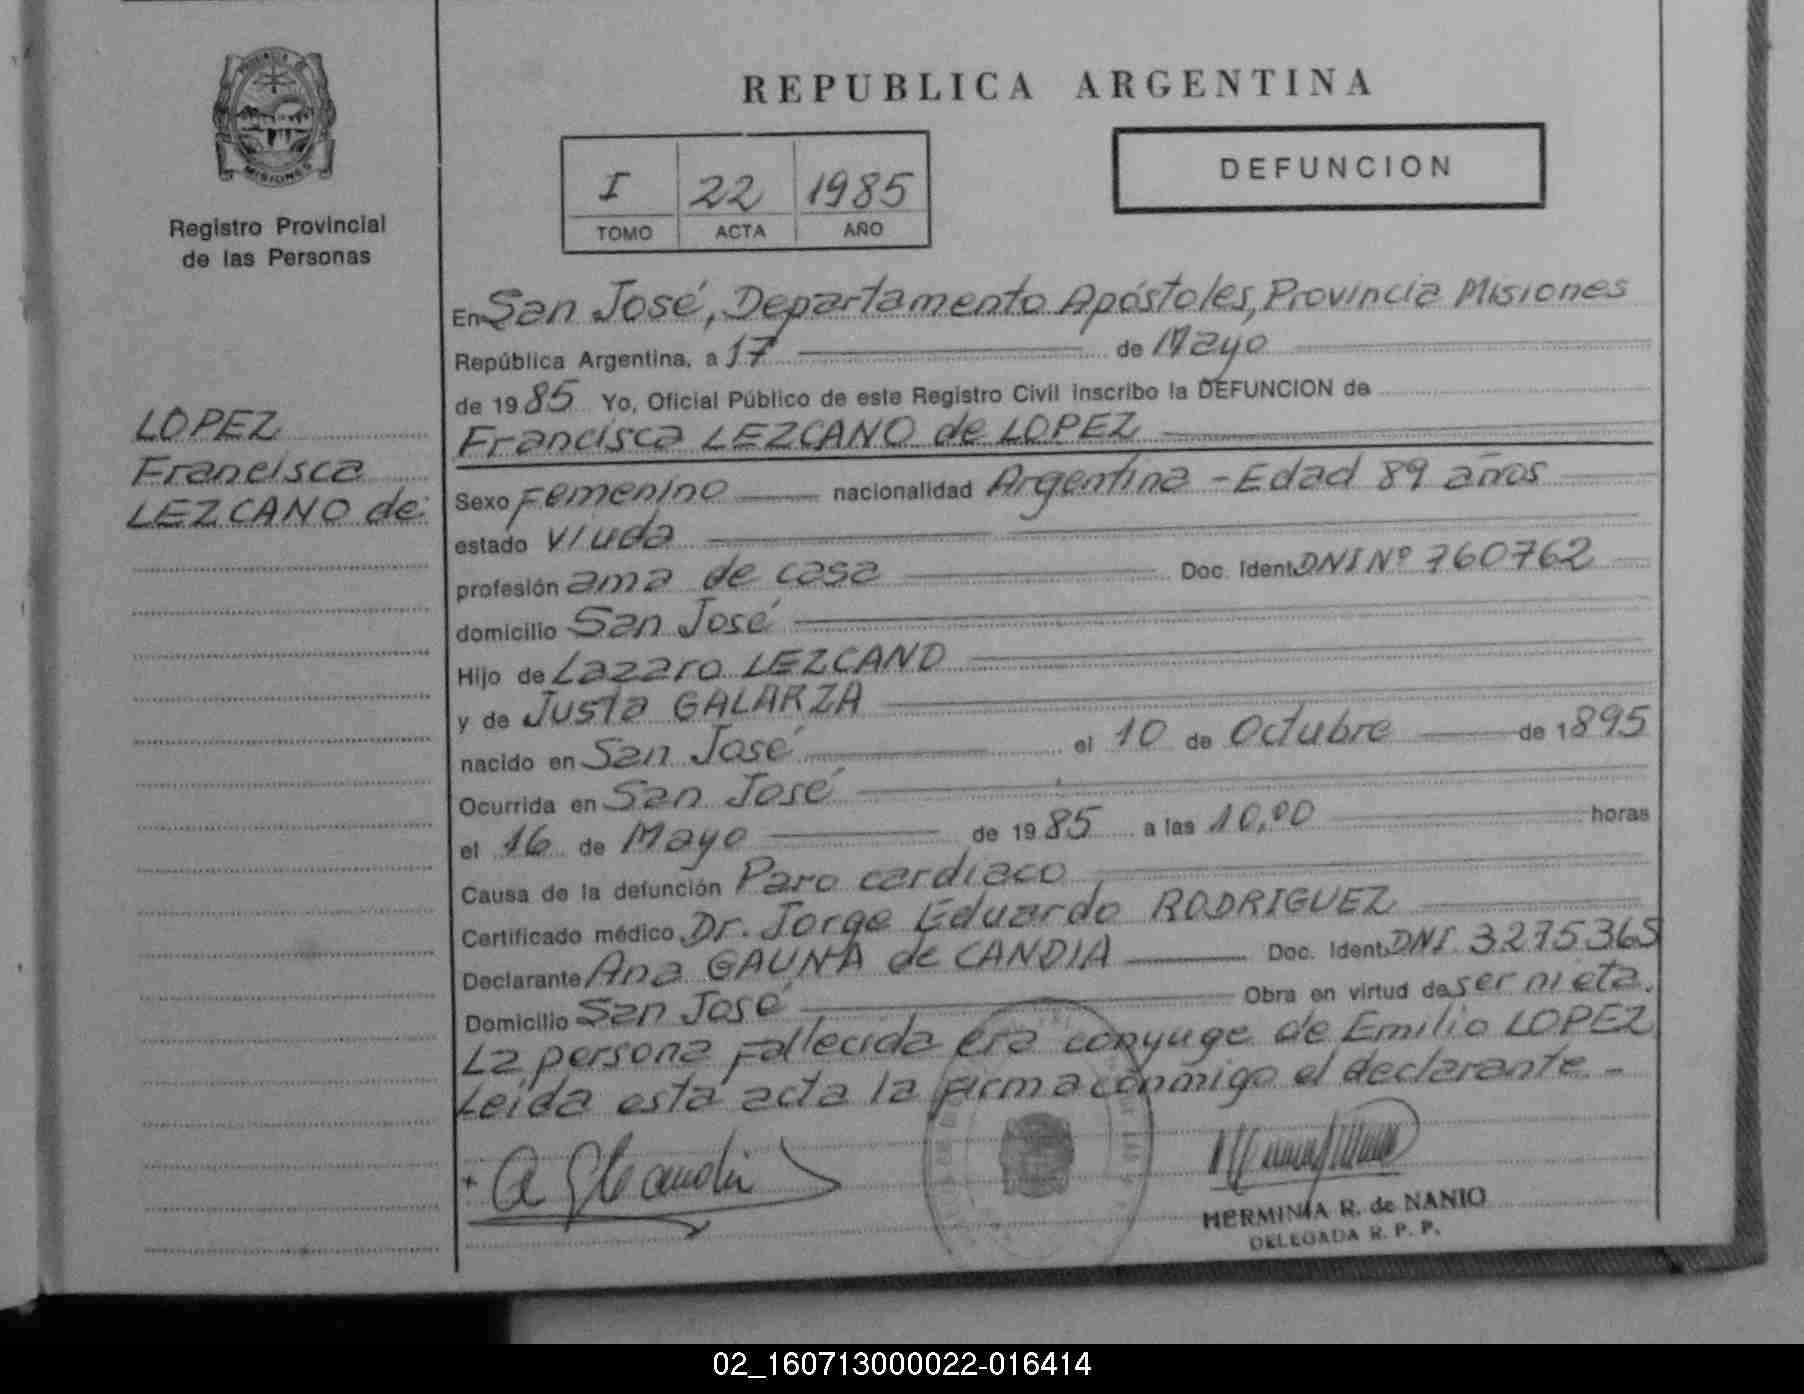 PROVINCIA DE
MISIONES
Registro Provincial
de las Personas
LOPEZ
Francisca
LEZCANO de
REPUBLICA ARGENTINA
I 22 1985
TOMO ACTA AÑO
DEFUNCION
En San José, Departamento Apóstoles, Provincia Misiones
República Argentina, a 17 de Mayo
de 1985 Yo, Oficial Público de este Registro Civil inscribo la DEFUNCION de
Francisca LEZCANO de LOPEZ
Sexo Femenino nacionalidad Argentina - Edad 89 años
estado Viuda
profesión ama de casa Doc. Ident. DNI Nº 760762
domicilio San José
Hijo de Lazaro LEZCANO
y de Justa GALARZA
nacido en San José el 10 de Octubre de 1895
Ocurrida en San José
el 16 de Mayo de 1985 a las 10,00 horas
Causa de la defunción Paro cardiaco
Certificado médico Dr. Jorge Eduardo RODRIGUEZ
Declarante Ana GAUNA de CANDIA Doc. Ident. DNI 3275365
Domicilio San José Obra en virtud de ser nieta.
La persona fallecida era conyuge de Emilio LOPEZ
Leida esta acta la firma conmigo el declarante -
HERMINIA R. de NANIO
DELEGADA R. P. P.
02_160713000022-016414